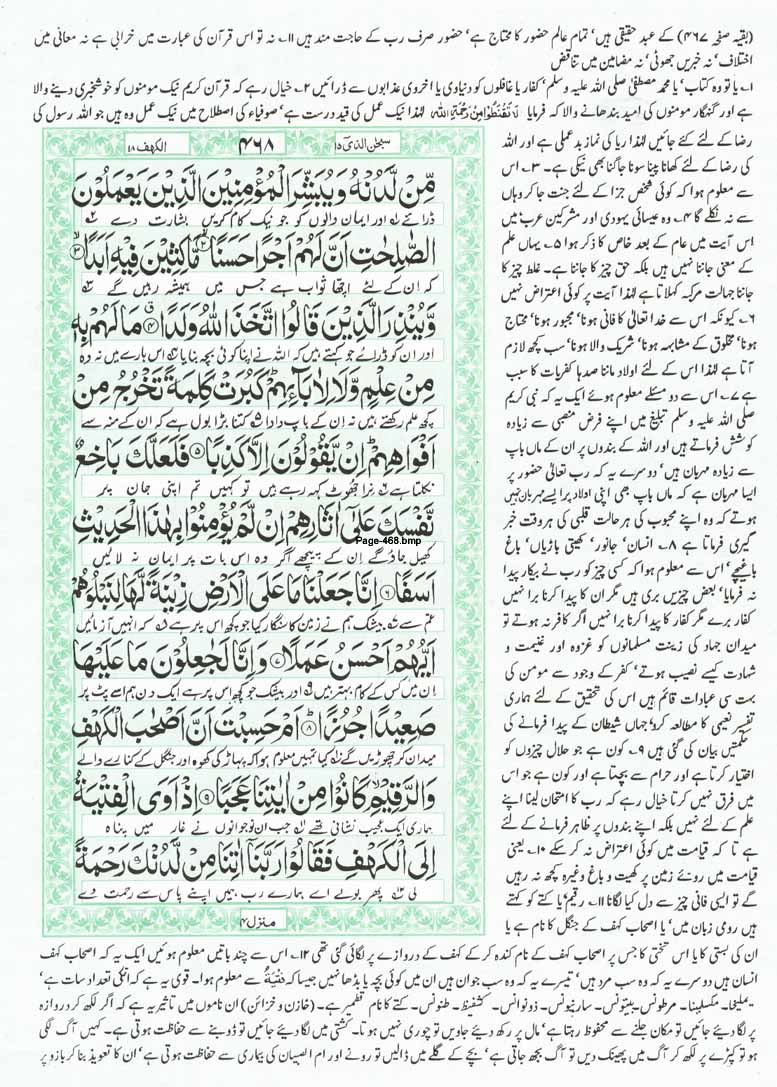 (بقیہ صفحہ ۴۶۷) کے عبد حقیقی ہیں' تمام عالم حضور کا محتاج ہے' حضور صرف رب کے حاجت مند ہیں ۱۱؎ نہ تو اس قرآن کی عبارت میں خرابی ہے نہ معانی میں
اختلاف' نہ خبریں جھوٹی' نہ مضامین میں تناقض
۱؎ یا تو وہ کتاب' یا محمد مصطفیٰ صلی اللہ علیہ وسلم' کفار یا غافلوں کو دنیاوی یا اخروی عذابوں سے ڈرائیں ۲؎ خیال رہے کہ قرآن کریم نیک مومنوں کو خوشخبری دینے والا
ہے اور گنہگار مومنوں کی امید بندھانے والا کہ فرمایا لَا تَقْنَطُوْا مِنْ رَّحْمَةِ اللّٰهِ لہٰذا نیک عمل کی قید درست ہے' صوفیاء کی اصطلاح میں نیک عمل وہ ہیں جو اللہ رسول کی
رضا کے لئے کئے جائیں لہٰذا ریا کی نماز بد عملی ہے اور اللہ
کی رضا کے لئے کھانا پینا سونا جاگنا بھی نیکی ہے۔ ۳؎ اس
سے معلوم ہوا کہ کوئی شخص جزا کے لئے جنت جا کر وہاں
سے نہ نکلے گا ۴؎ وہ عیسائی یہودی اور مشرکین عرب ہیں
اس آیت میں عام کے بعد خاص کا ذکر ہوا ۵؎ یہاں علم
کے معنی جاننا نہیں ہیں بلکہ حق چیز کا جاننا ہے۔ غلط چیز کا
جاننا جہالت مرکبہ کہلاتا ہے لہٰذا آیت پر کوئی اعتراض نہیں
۶؎ کیونکہ اس سے خدا تعالٰی کا فانی ہونا' مجبور ہونا' محتاج
ہونا' مخلوق کے مشابہہ ہونا' شریک والا ہونا' سب کچھ لازم
آتا ہے لہٰذا اس کے لئے اولاد ماننا صدہا کفریات کا سبب
ہے ۷؎ اس سے دو مسئلے معلوم ہوئے ایک یہ کہ نبی کریم
صلی اللہ علیہ وسلم تبلیغ میں اپنے فرض منصبی سے زیادہ
کوشش فرماتے ہیں اور اللہ کے بندوں پر ان کے ماں باپ
سے زیادہ مہربان ہیں' دوسرے یہ کہ رب تعالٰی حضور پر
ایسا مہربان ہے کہ ماں باپ بھی اپنی اولاد پر ایسے مہربان نہیں
ہوتے کہ وہ اپنے محبوب کی ہر حالت قلبی کی ہر وقت خبر
گیری فرماتا ہے ۸؎ انسان' جانور' کھیتی باڑیاں' باغ
باغیچے' اس سے معلوم ہوا کہ کسی چیز کو رب نے بیکار پیدا
نہ فرمایا' بعض چیزیں بری ہیں مگر ان کا پیدا کرنا برا نہیں
کفار برے مگر کفار کا پیدا کرنا برا نہیں اگر کافر نہ ہوتے تو
میدان جہاد کی زینت مسلمانوں کو غزوہ اور غنیمت و
شہادت کیسے نصیب ہوتے' کفر کے وجود سے مومن کی
بہت سی عبادات قائم ہیں اس کی تحقیق کے لئے ہماری
تفسیر نعیمی کا مطالعہ کرو' جہاں شیطان کے پیدا فرمانے کی
حکمتیں بیان کی گئی ہیں ۹؎ کون ہے جو حلال چیزوں کو
اختیار کرتا ہے اور حرام سے بچتا ہے اور کون ہے جو اس
میں فرق نہیں کرتا خیال رہے کہ رب کا امتحان لینا اپنے
علم کے لئے نہیں بلکہ اپنے بندوں پر ظاہر فرمانے کے لئے
ہے تا کہ قیامت میں کوئی اعتراض نہ کر سکے ۱۰؎ یعنی
قیامت میں روئے زمین پر کھیت و باغ وغیرہ کچھ نہ رہیں
گے تو ایسی فانی چیز سے دل کیا لگانا ۱۱؎ رقیم' یا کتے کو کہتے
ہیں رومی زبان میں' یا اصحاب کہف کے جنگل کا نام ہے یا
سبحٰن الذی ۱۵
۴۶۸
الکہف ۱۸
مِّنْ لَّدُنْهُ وَيُبَشِّرَ الْمُؤْمِنِيْنَ الَّذِيْنَ يَعْمَلُوْنَ
ڈرائے ۱؎ اور ایمان والوں کو جو نیک کام کریں بشارت دے ۲؎
الصّٰلِحٰتِ اَنَّ لَهُمْ اَجْرًا حَسَنًا ﴿۲﴾ مَّاكِثِيْنَ فِيْهِ اَبَدًا ﴿۳﴾
کہ ان کے لئے اچھا ثواب ہے جس میں ہمیشہ رہیں گے ۳؎
وَّيُنْذِرَ الَّذِيْنَ قَالُوا اتَّخَذَ اللّٰهُ وَلَدًا ﴿۴﴾ مَا لَهُمْ بِهٖ
اور ان کو ڈرائے جو کہتے ہیں کہ اللہ نے اپنا کوئی بچہ بنایا ۴؎ اس بارے میں نہ وہ
مِنْ عِلْمٍ وَّلَا لِاٰبَآئِهِمْ كَبُرَتْ كَلِمَةً تَخْرُجُ مِنْ
کچھ علم رکھتے ہیں نہ ان کے باپ دادا ۵؎ کتنا بڑا بول ہے کہ ان کے منہ سے
اَفْوَاهِهِمْ اِنْ يَّقُوْلُوْنَ اِلَّا كَذِبًا ﴿۵﴾ فَلَعَلَّكَ بَاخِعٌ
نکلتا ہے ۶؎ نرا جھوٹ کہہ رہے ہیں تو کہیں تم اپنی جان پر
نَّفْسَكَ عَلٰٓى اٰثَارِهِمْ اِنْ لَّمْ يُؤْمِنُوْا بِهٰذَا الْحَدِيْثِ
Page-468.bmp
کھیل جاؤ گے ان کے پیچھے اگر وہ اس بات پر ایمان نہ لائیں
اَسَفًا ﴿۶﴾ اِنَّا جَعَلْنَا مَا عَلَى الْاَرْضِ زِيْنَةً لَّهَا لِنَبْلُوَهُمْ
غم سے ۷؎ بیشک ہم نے زمین کا سنگار کیا جو کچھ اس پر ہے ۸؎ کہ انہیں آزمائیں
اَيُّهُمْ اَحْسَنُ عَمَلًا ﴿۷﴾ وَاِنَّا لَجٰعِلُوْنَ مَا عَلَيْهَا
ان میں کس کے کام بہتر ہیں ۹؎ اور بیشک جو کچھ اس پر ہے ایک دن ہم اسے پٹ پر
صَعِيْدًا جُرُزًا ﴿۸﴾ اَمْ حَسِبْتَ اَنَّ اَصْحٰبَ الْكَهْفِ
میدان کر چھوڑیں گے ۱۰؎ کیا تمہیں معلوم ہوا کہ پہاڑ کی کھوہ اور جنگل کے کنارے والے
وَالرَّقِيْمِ كَانُوْا مِنْ اٰيٰتِنَا عَجَبًا ﴿۹﴾ اِذْ اَوَى الْفِتْيَةُ
ہماری ایک عجیب نشانی تھے ۱۱؎ جب ان نوجوانوں نے غار میں پناہ
اِلَى الْكَهْفِ فَقَالُوْا رَبَّنَآ اٰتِنَا مِنْ لَّدُنْكَ رَحْمَةً
لی ۱۲؎ پھر بولے اے ہمارے رب ہمیں اپنے پاس سے رحمت دے
منزل ۴
ان کی بستی کا یا اس تختی کا جس پر اصحاب کہف کے نام کندہ کر کے کہف کے دروازے پر لگائی گئی تھی ۱۲؎ اس سے چند باتیں معلوم ہوئیں ایک یہ کہ اصحاب کہف
انسان ہیں دوسرے یہ کہ وہ سب مرد ہیں' تیسرے یہ کہ وہ سب جوان ہیں ان میں کوئی بچہ یا بڈھا نہیں جیسا کہ فِتْيَةٌ سے معلوم ہوا۔ قوی یہ ہے کہ انکی تعداد سات ہے'
یملیخا۔ مکسلینا۔ مرطونس۔ بینونس۔ سارینونس۔ ذونوانس۔ کشفیط۔ طنونس۔ کتے کا نام قطمیر ہے۔ (خازن و خزائن) ان ناموں میں تاثیر یہ ہے کہ اگر لکھ کر دروازہ
پر لگا دیئے جائیں تو مکان جلنے سے محفوظ رہتا ہے' مال پر رکھ دیئے جاویں تو چوری نہیں ہوتا۔ کشتی میں لگا دیئے جائیں تو ڈوبنے سے حفاظت ہوتی ہے۔ کہیں آگ لگی
ہو تو کپڑے پر لکھ کر آگ میں پھینک دیں تو آگ بجھ جاتی ہے' بچے کے گلے میں ڈالیں تو رونے اور ام الصبیان کی بیماری سے حفاظت ہوتی ہے' ان کا تعویذ بنا کر بازو پر